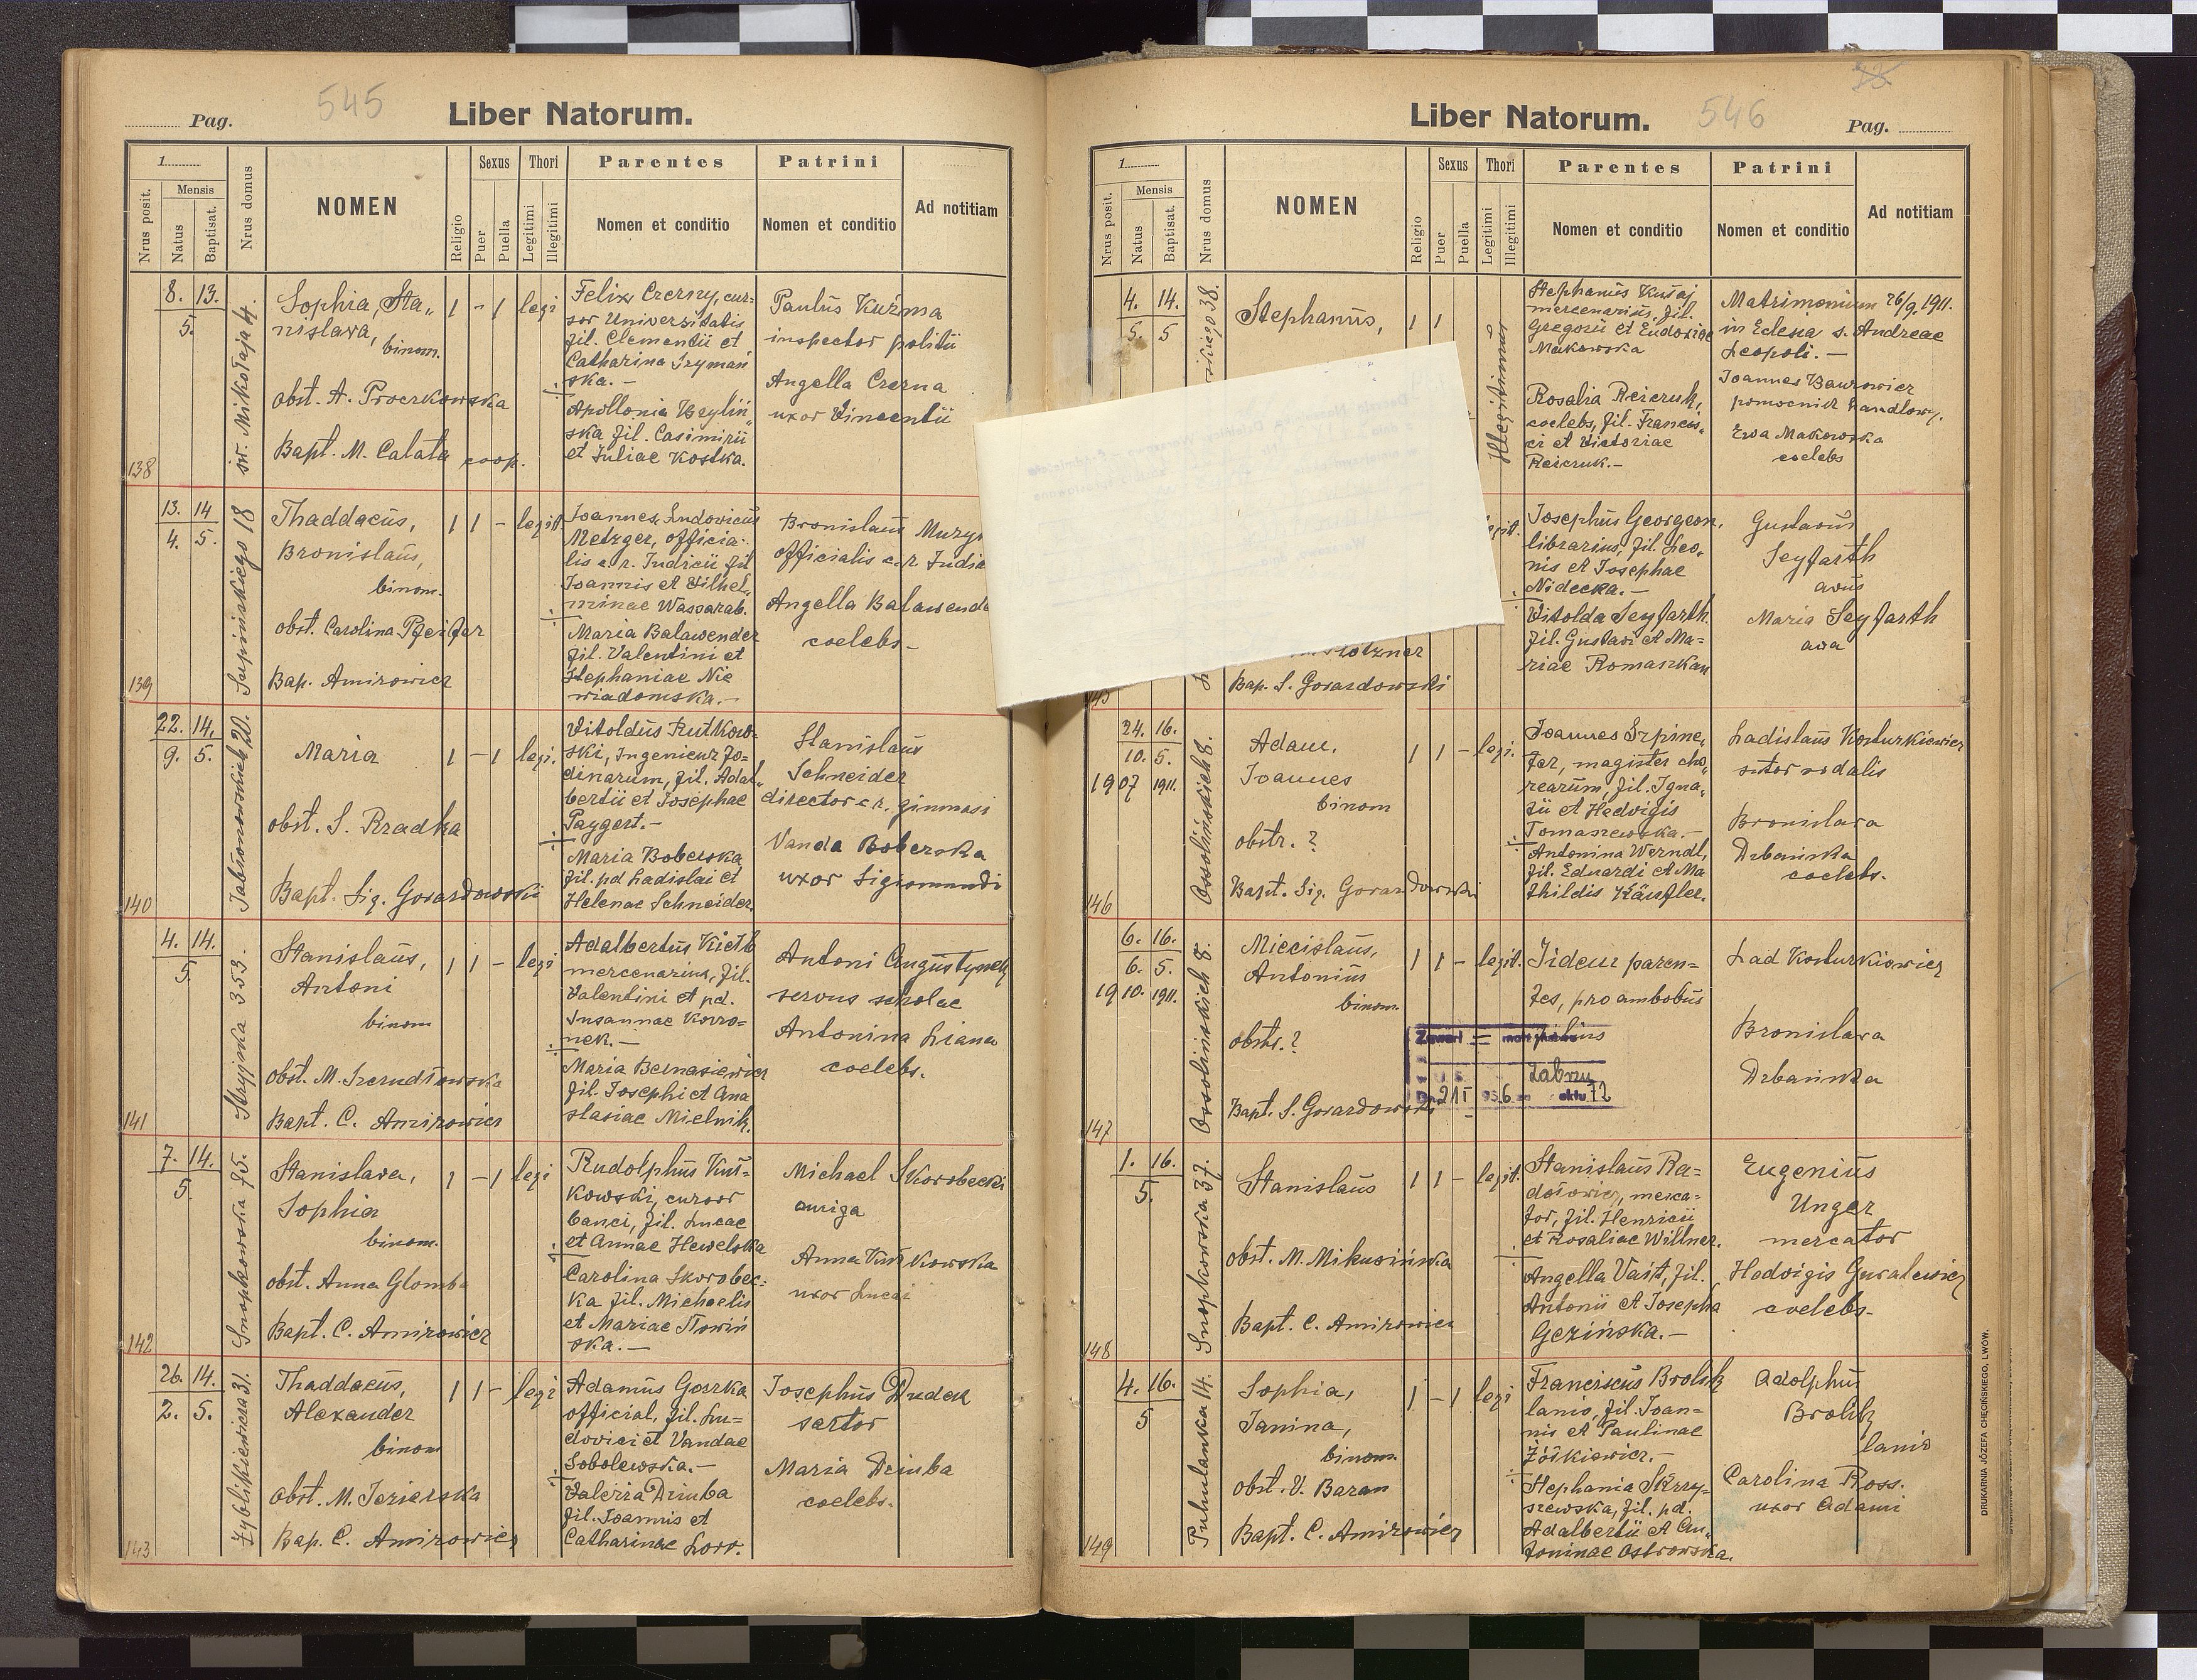 Pag.
545
Liber Natorum.
1
Nrus posit.
Mensis
Natus
Baptisat.
Nrus domus
NOMEN
Religio
Sexus
Puer
Puella
Thori
Legitimi
Illegitimi
Parentes
Nomen et conditio
Patrini
Nomen et conditio
Ad notitiam
138
8. 13.
5.
św. Mikołaja 4.
Sophia, Sta„
nislava,
binom.
obst. A. Proczkowska
Bapt. M. Calata coop.
1 - 1 legi
Felix Czerny, cur=
sor Universitatis
fil. Clementii et
Catharina Szymań
ska. -
Apollonia Weyliń
ska fil. Casimirii
et Juliae Kostka.
Paulus Kuźma
inspector politii
Angella Czerna
uxor Vincentii
139
13. 14
4. 5.
Supińskiego 18
Thaddaeus,
Bronislaus,
binom.
obst. Carolina Pfeiffer
Bap. Amirowicz
1 1 - legit.
Joannes, Ludovicus
Metzger, officia=
lis c. r. Judicii fil
Joannis et Vilhel„
minae Wassarab.
Maria Balawender
fil. Valentini et
Stephaniae Nie
wiadomska. -
Bronislaus
officialis c. r.
Angella
coelebs -
140
22. 14.
9. 5.
Jabłonowskich 20.
Maria
obst. S. Rradka
Bapt. Sig. Gorazdowski
1 - 1 legi.
Vitoldus Rutkow=
ski, Ingenieur Jo=
dinarum, fil. Adal„
bertii et Josephae
Paygert. -
Maria Boberska
fil. pd Ladislai et
Helenae Schneider.
Stanislaus
Schneider
director c. r. gimnasi
Vanda Boberska
uxor Sigismundi
141
4. 14.
5.
Stryjska 353.
Stanislaus,
Antoni
binom
obst. M. Szerudłowska
Bapt. C. Amirowicz
1 1 - legi
Adalbertus Kielb
mercenarius, fil.
Valentini et pd.
Susannae Kowo=
nek. -
Maria Bernasiewicz
fil. Josephi et Ana
stasiae Mielnik.
Antoni Augustynek
servus scholae
Antonina Liana
coelebs.
142
7. 14.
5.
Snopkowska 75.
Stanislava,
Sophia
binom.
obst. Anna Glomba
Bapt. C. Amirowicz
1 - 1 legi
Rudolphus Kuś=
kowski, cursor
banci, fil. Lucae
et Annae Hewelska
Carolina Skorobec=
ka fil. Michaelis
et Mariae Słowiń
ska. -
Michael Skorobecki
auriga
Anna Kuśkowska
uxor Lucai
143
26. 14.
2. 5.
Zyblikiewicza 31.
Thaddaeus,
Alexander
binom
obst. M. Jezierska
Bap. C. Amirowicz
1 1 - legi
Adamus Gorzka
official, fil. Lu=
dovici et Vandae
Sobolewska. -
Valeria Dziuba
fil. Joannis et
Catharinae Lorr.
Josephus Dudek
sartor
Maria Dziuba
coelebs.
Liber Natorum.
546
Pag.
1
Nrus posit.
Mensis
Natus
Baptisat.
Nrus domus
NOMEN
Religio
Sexus
Puer
Puella
Thori
Legitimi
Illegitimi
Parentes
Nomen et conditio
Patrini
Nomen et conditio
Ad notitiam
4. 14.
5. 5
38.
Stephanus,
1 1
Illegitimus
Stephanus Kusaj
mercenarius, fil.
Gregorii et Eudoxiae
Makowska
Rosalia Reiczuk,
coelebs, fil. Francis„
ci et Victoriae
Reiczuk. -
Matrimonium 26/9. 1911.
in Eclesia s. Andreae
Leopoli. -
Joannes Baurowicz
pomocnik handlowy.
Ewa Makowska
coelebs
145
Bap. S. Gorazdowski
legit.
Josephus Georgeon,
librarius, fil. Leo„
nis et Josephae
Nidecka. -
Vitolda Seyfarth
fil. Gustavi et Ma=
riae Romaszkan
Gustavus
Seyfarth
avus
Maria Seyfarth
ava
146
24. 16.
10. 5.
1907 1911.
Ossolińskich 8.
Adam,
Joannes
binom
obstr. ?
Bapt. Sig. Gorazdowski
1 1 - legi.
Joannes Szpine„
ter, magister cho„
rearum, fil. Igna„
tii et Hedvigis
Tomaszewska. -
Antonina Werndl,
fil. Eduardi et Ma
thildis Käufler.
Ladislaus Kosturkiewicz
sutor sodalis
Bronislava
Drbańska
coelebs.
147
6. 16.
6. 5.
1910. 1911.
Ossolińskich 8.
Miecislaus,
Antonius
binom.
obstr. ?
Bapt. S. Gorazdowski
1 1 - legit.
Iidem paren=
tes, pro ambobus
filius
Zawarł małżeństwo
Zabrzu
Dn. 21 I 1956 aktu 72
Lad Kosturkiewicz
Bronislava
Drbańska
148
1. 16.
5.
Snopkowska 37.
Stanislaus
obst. M. Mikusińska
Bapt. C. Amirowicz
1 1 - legit.
Stanislaus Ra=
dołowicz, merca=
tor, fil. Henricii
et Rosaliae Willner.
Angella Vait, fil.
Antonii et Josepha
Gezińska. -
Eugenius
Unger
mercator
Hedvigis Guralewicz
coelebs -
149
4. 16.
5
Puhulanka 14.
Sophia,
Janina,
binom
obst. V. Baran
Bapt. C. Amirowicz
1 - 1 legi
Franciscus Brolik
lanio, fil. Joan=
nis et Paulinae
Żółkiewicz. -
Stephania Skrzy=
szewska, fil. pd.
Adalbertii et An„
toninae Ostrowska.
Adolphus
Brolik
lanio
Carolina Ross.
uxor Adami
DRUKARNIA JÓZEFA CHĘCIŃSKIEGO. LWÓW.